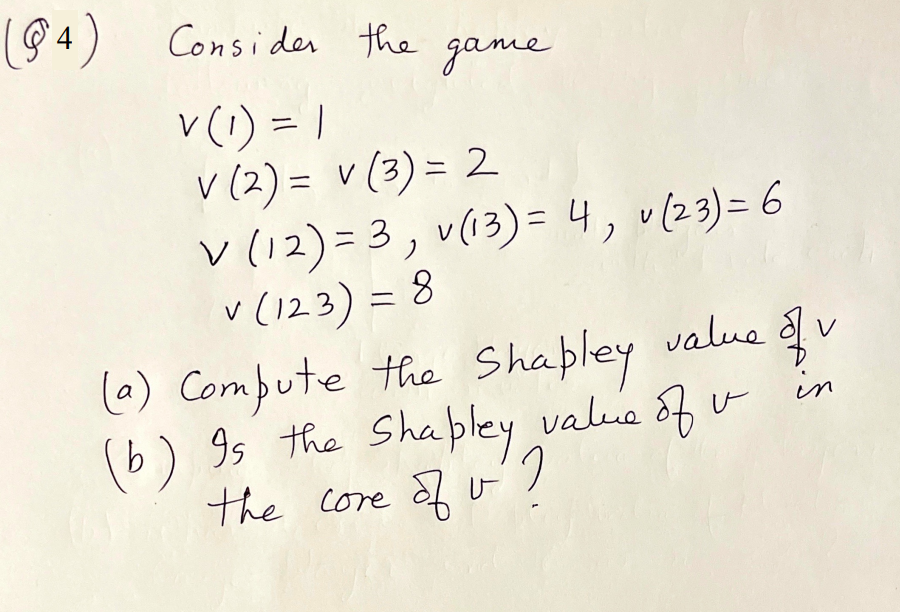 (Q 4) Consider the game
v(1) = 1
v(2) = v(3) = 2
v(12) = 3, v(13) = 4, v(23) = 6
v(123) = 8
(a) Compute the Shapley value of v
(b) Is the Shapley value of v in
the core of v?